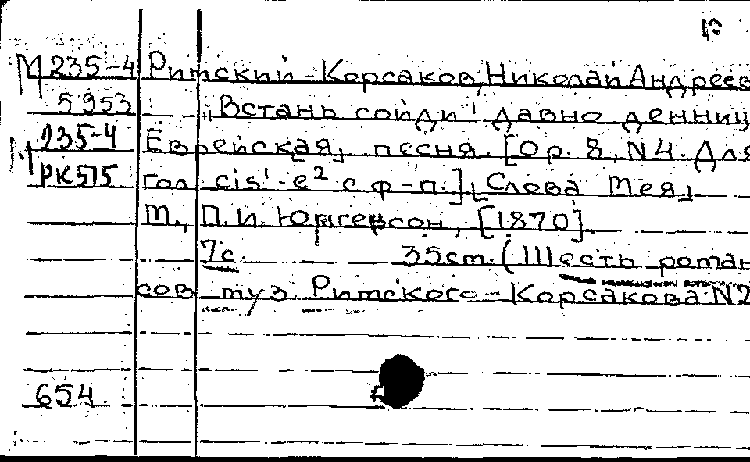 М 235-4 Римский-Корсаков, Николай Андреев
5953 „Встань сойди! давно денниц
М 235-4 Еврейская„ песня. [Ор. 8, N4. Для
РК515 гол cis¹-e² с ф-п.] „Слова Мея„
М., П. И. Юргенсон, [1870].
7с. 35cm. (Шесть роман
сов муз. Римского-Корсакова N2
654